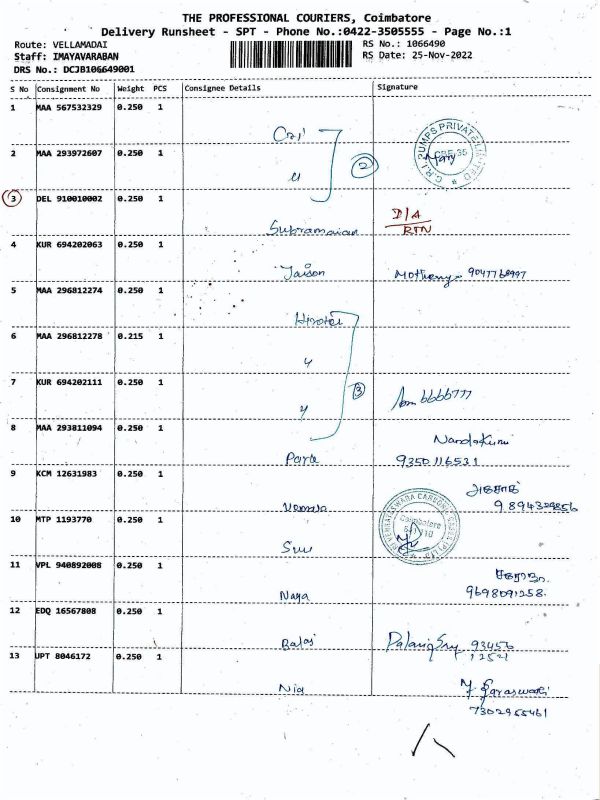 THE PROFESSIONAL COURIERS, Coimbatore
Delivery Runsheet - SPT - Phone No.:0422-3505555 - Page No.:1
Route: VELLAMADAI RS No.: 1066490
Staff: IMAYAVARABAN RS Date: 25-Nov-2022
DRS No.: DCJB106649001
S No Consignment No Weight PCS Consignee Details Signature
1 MAA 567532329 0.250 1
Cri
C.R.I. PUMPS PRIVATE LIMITED
2 MAA 293972607 0.250 1
2
3 DEL 910010002 0.250 1
Subramanian
D/A
RTN
4 KUR 694202063 0.250 1
Jaison
5 MAA 296812274 0.250 1
6 MAA 296812278 0.215 1
7 KUR 694202111 0.250 1
3
6666777
8 MAA 293811094 0.250 1
9350116531
9 KCM 12631983 0.250 1
10 MTP 1193770 0.250 1
Coimbatore
11 VPL 940892008 0.250 1
Naga
9698091258.
12 EDQ 16567808 0.250 1
Balaj
93456
12521
13 JPT 8046172 0.250 1
Nia
7302955461